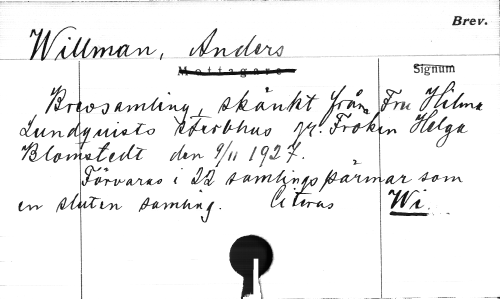 Brev.
Willman, Anders
Mottagare
Signum
Brevsamling, skänkt från Fru Hilma
Lundquists sterbhus gr. Fröken Helga
Blomstedt den 9/11 1927.
Förvaras i 22 samlingspärmar som
en sluten samling. Citeras Wi.